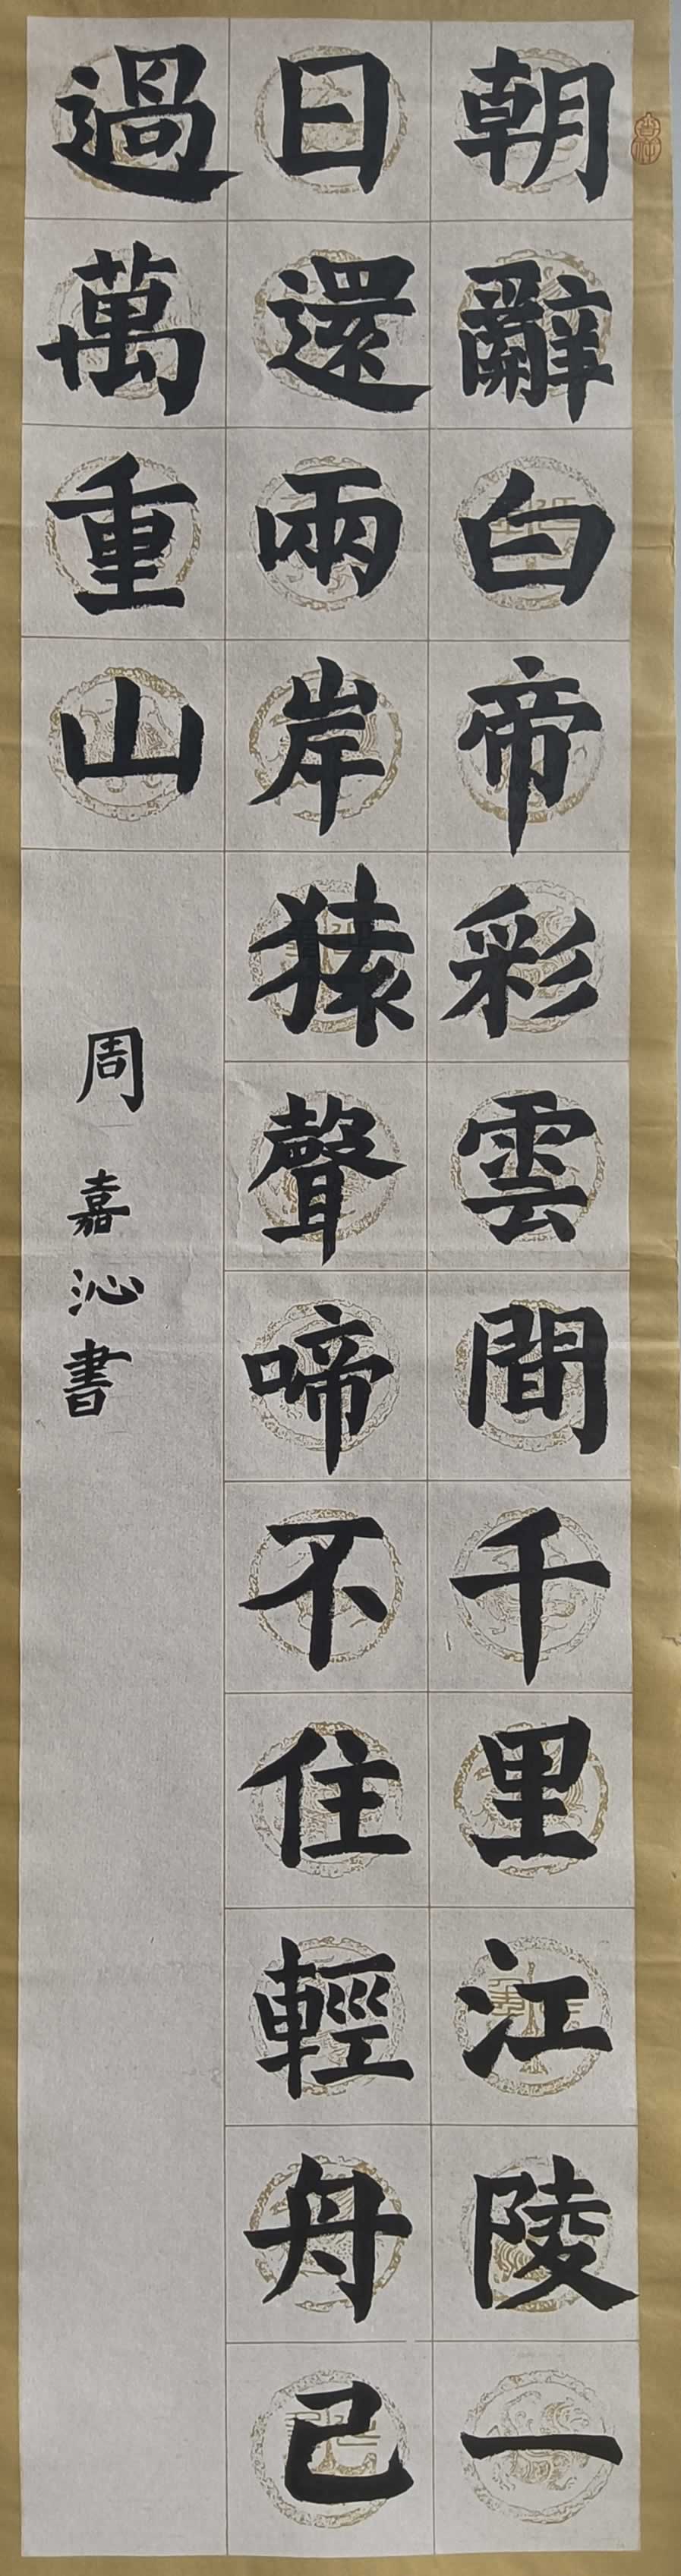 朝辭白帝彩雲間千里江陵一
日還兩岸猿聲啼不住輕舟已
過萬重山
周嘉沁書